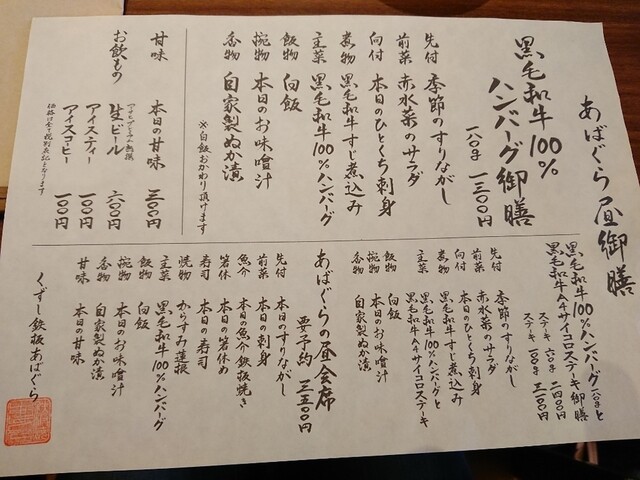 あばぐら昼御膳
黒毛和牛100%
ハンバーグ御膳
一八〇g 一三〇〇円
先付 季節のすりながし
前菜 赤水菜のサラダ
向付 本日のひとくち刺身
煮物 黒毛和牛すじ煮込み
主菜 黒毛和牛100%ハンバーグ
飯物 白飯
椀物 本日のお味噌汁
香物 自家製ぬか漬
※白飯おかわり頂けます
甘味 本日の甘味 三〇〇円
お飲もの
生ビール 六〇〇円
アイスティー 一〇〇円
アイスコーヒー 一〇〇円
価格は全て税別表記となります
黒毛和牛100%ハンバーグ一八〇gと
黒毛和牛A4サイコロステーキ御膳
ステーキ 六〇g 二四〇〇円
ステーキ 一〇〇g 三一〇〇円
先付 季節のすりながし
前菜 赤水菜のサラダ
向付 本日のひとくち刺身
煮物 黒毛和牛すじ煮込み
主菜 黒毛和牛100%ハンバーグと
黒毛和牛A4サイコロステーキ
飯物 白飯
椀物 本日のお味噌汁
香物 自家製ぬか漬
あばぐらの昼会席
要予約 三五〇〇円
先付 本日のすりながし
前菜 本日の刺身
魚介 本日の魚介鉄板焼き
箸休 本日の箸休め
寿司 本日の寿司
焼物 からすみ蓮根
主菜 黒毛和牛100%ハンバーグ
飯物 白飯
椀物 本日のお味噌汁
香物 自家製ぬか漬
甘味 本日の甘味
くずし鉄板あばぐら